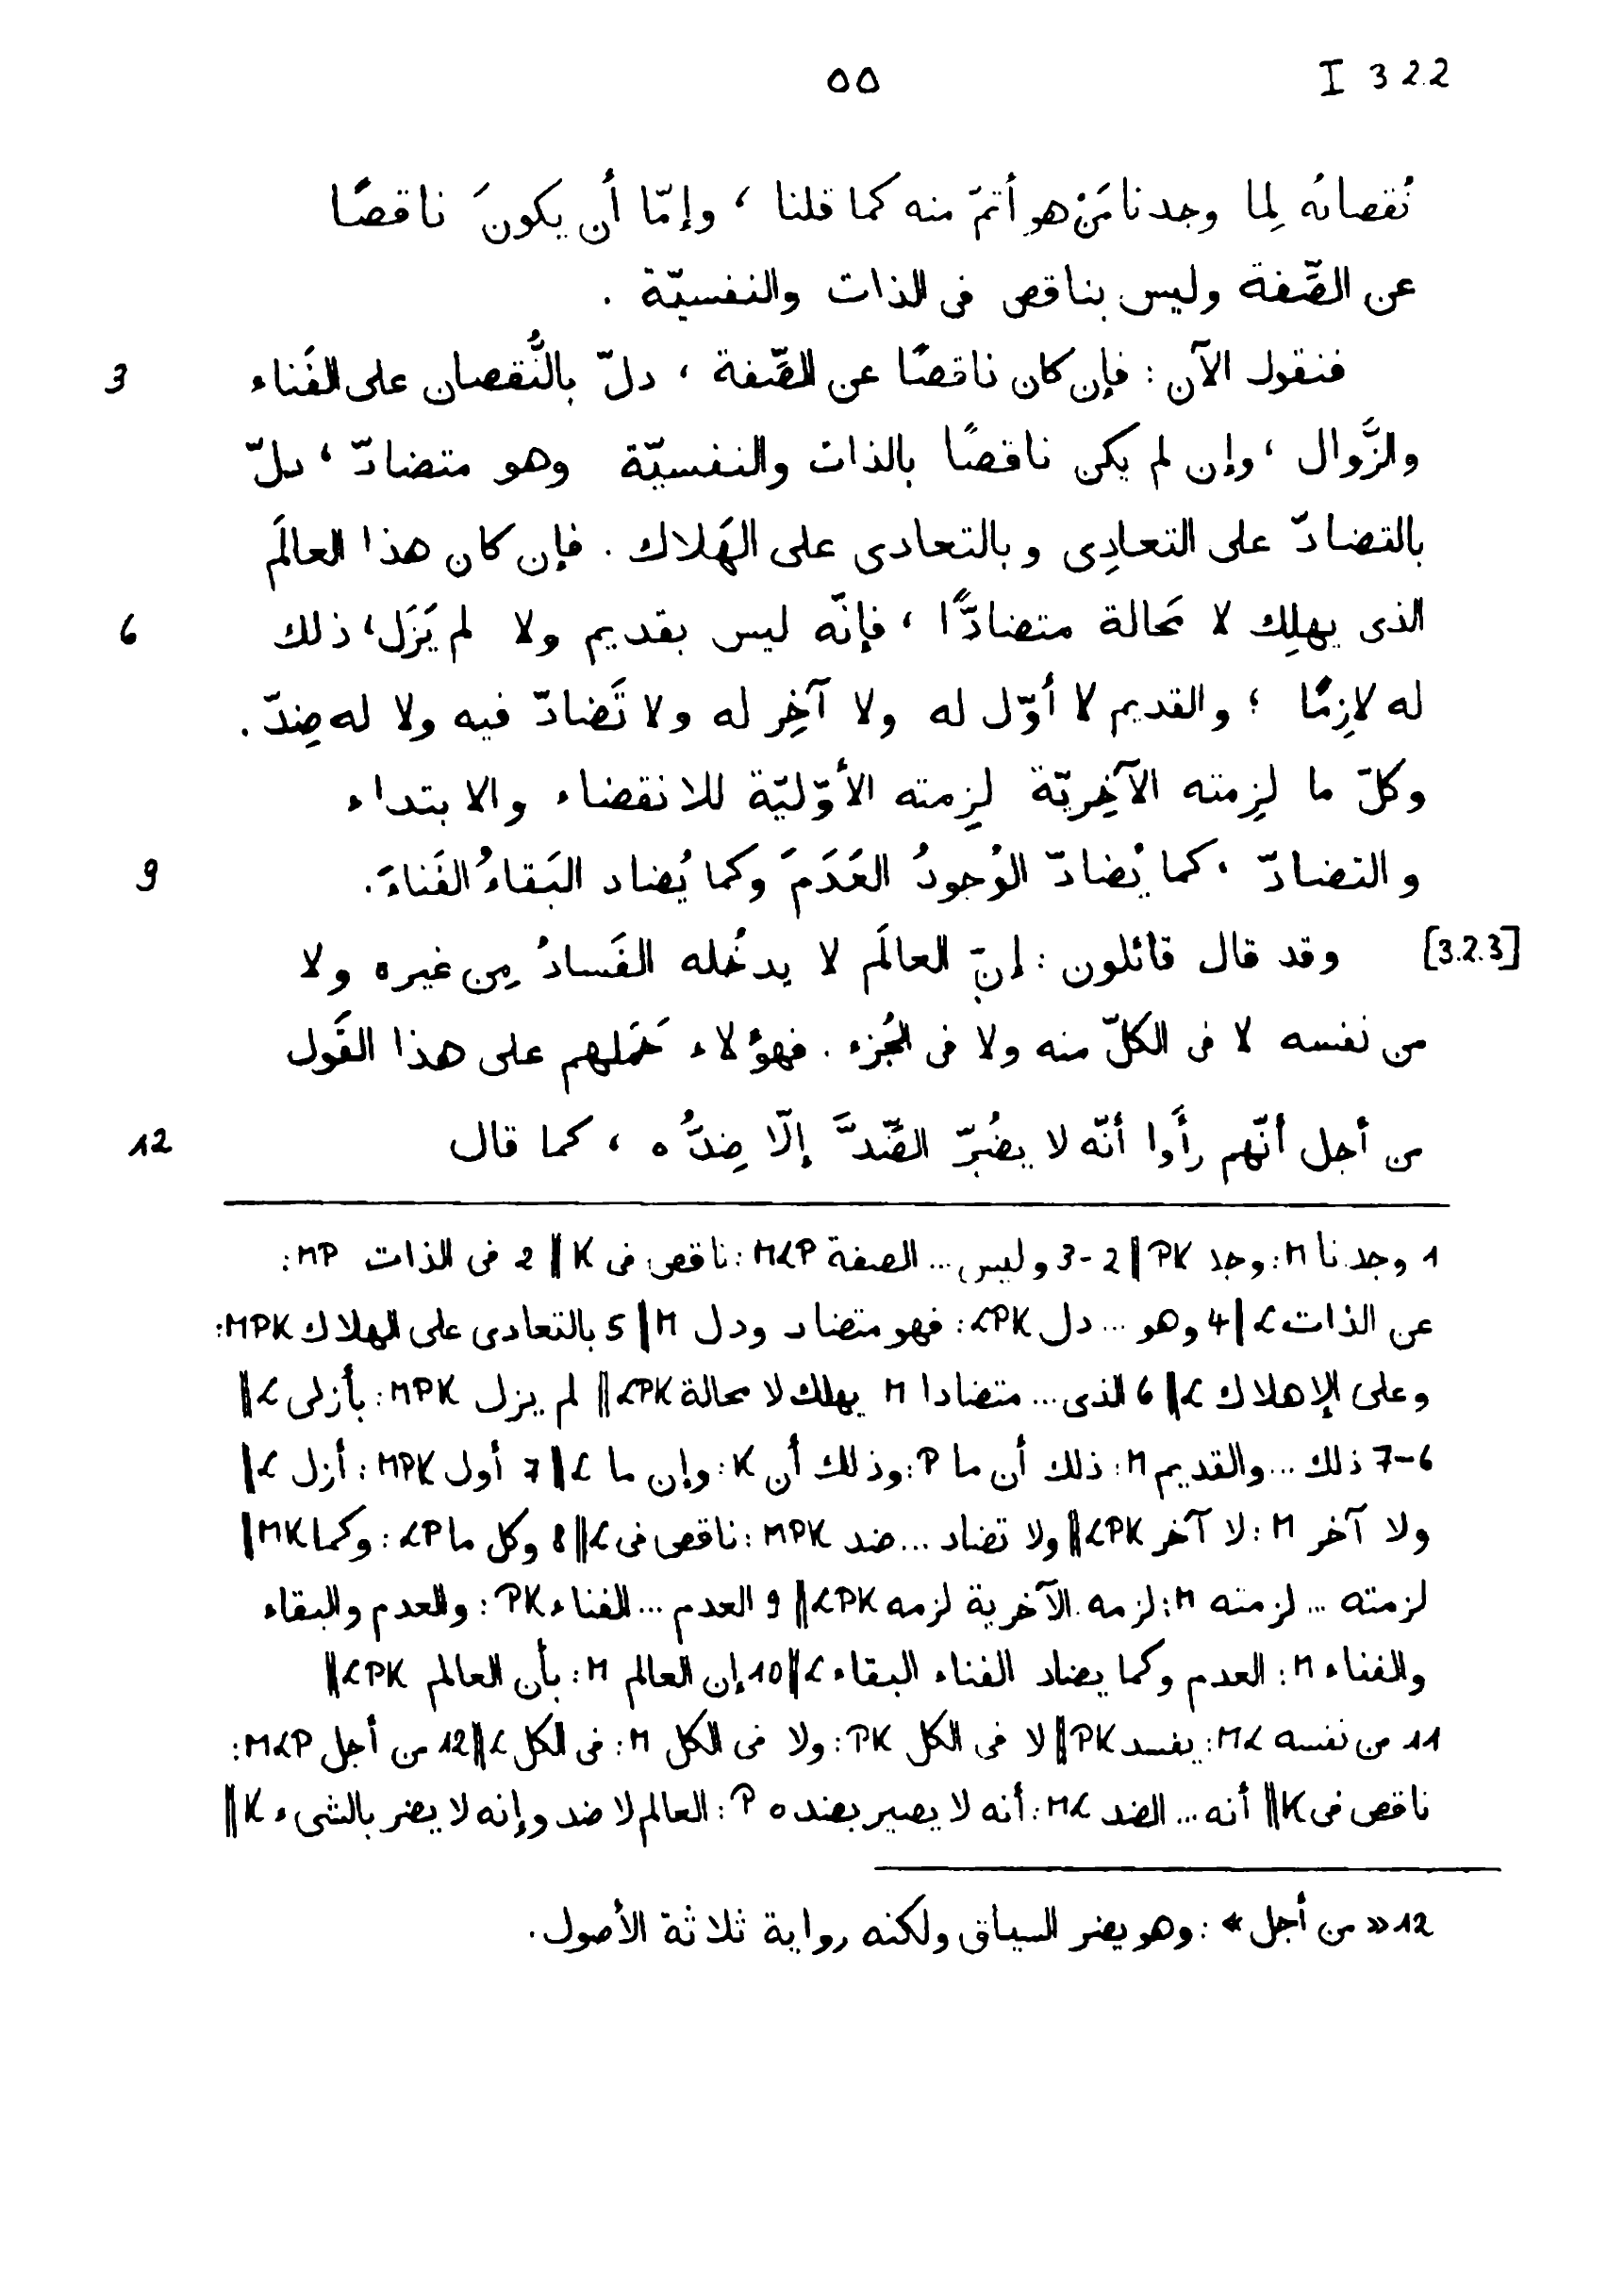 I 3 2.2 ٥٥
نُقصانُه لِما وجدنا مَنْ هو أتمّ منه كما قلنا ، وإمّا أن يكونَ ناقصًا
عن الصِّفة وليس بناقص فى الذات والنفسيّة .
3 فنقول الآن : فإن كان ناقصًا عن الصِّفة ، دلّ بالنُّقصان على الفَناء
والزَّوال ، وإن لم يكن ناقصًا بالذات والنفسيّة وهو متضادّ ، دلّ
بالتضادّ على التعادِى وبالتعادى على الهَلاك . فإن كان هذا العالَم
6 الذى يهلِك لا مَحالة متضادًّا ، فإنّه ليس بقديم ولا لم يَزَل ، ذلك
له لازِمًا ؛ والقديم لا أوّل له ولا آخِر له ولا تَضادّ فيه ولا له ضِدّ .
وكلّ ما لزِمته الآخِريّة لزِمته الأوّليّة للانقضاء والابتداء
9 والتضادّ ، كما يُضادّ الوُجودُ العَدَمَ وكما يُضاد البَقاءُ الفَناءَ .
[3.2.3] وقد قال قائلون : إنّ العالَم لا يدخُله الفَسادُ مِن غيره ولا
من نفسه لا فى الكلّ منه ولا فى الجُزء . فهؤلاء حَمَلهم على هذا القَول
12 من أجل أنّهم رأَوا أنّه لا يضُرّ الضِّدَّ إلّا ضِدُّه ، كما قال
1 وجدنا M : وجد PK ‖ 2-3 وليس ... الصفة MLP : ناقص فى K ‖ 2 فى الذات MP :
عن الذات L ‖ 4 وهو ... دل LPK : فهو متضاد ودل M ‖ 5 بالتعادى على الهلاك MPK :
وعلى الإهلاك L ‖ 6 الذى ... متضادا M يهلك لا محالة LPK ‖ لم يزل MPK : بأزلى L ‖
6-7 ذلك ... والقديم M : ذلك أن ما P : وذلك أن K : وإن ما L ‖ 7 أول MPK : أزل L ‖
ولا آخر M : لا آخر LPK ‖ ولا تضاد ... ضد MPK : ناقص فى L ‖ 8 وكل ما LP : وكما MK ‖
لزمته ... لزمته M : لزمه الآخرية لزمه LPK ‖ 9 العدم ... الفناء PK : والعدم والبقاء
والفناء M : العدم وكما يضاد الفناء البقاء L ‖ 10 إن العالم M : بأن العالم LPK ‖
11 من نفسه ML : يفسد PK ‖ لا فى الكل PK : ولا فى الكل M : فى الكل L ‖ 12 من أجل MLP :
ناقص فى K ‖ أنه ... الضد ML : أنه لا يصير بضده P : العالم لا ضد وإنه لا يضر بالشىء K ‖
12 « من أجل » : وهو يضر السياق ولكنه رواية ثلاثة الأصول .